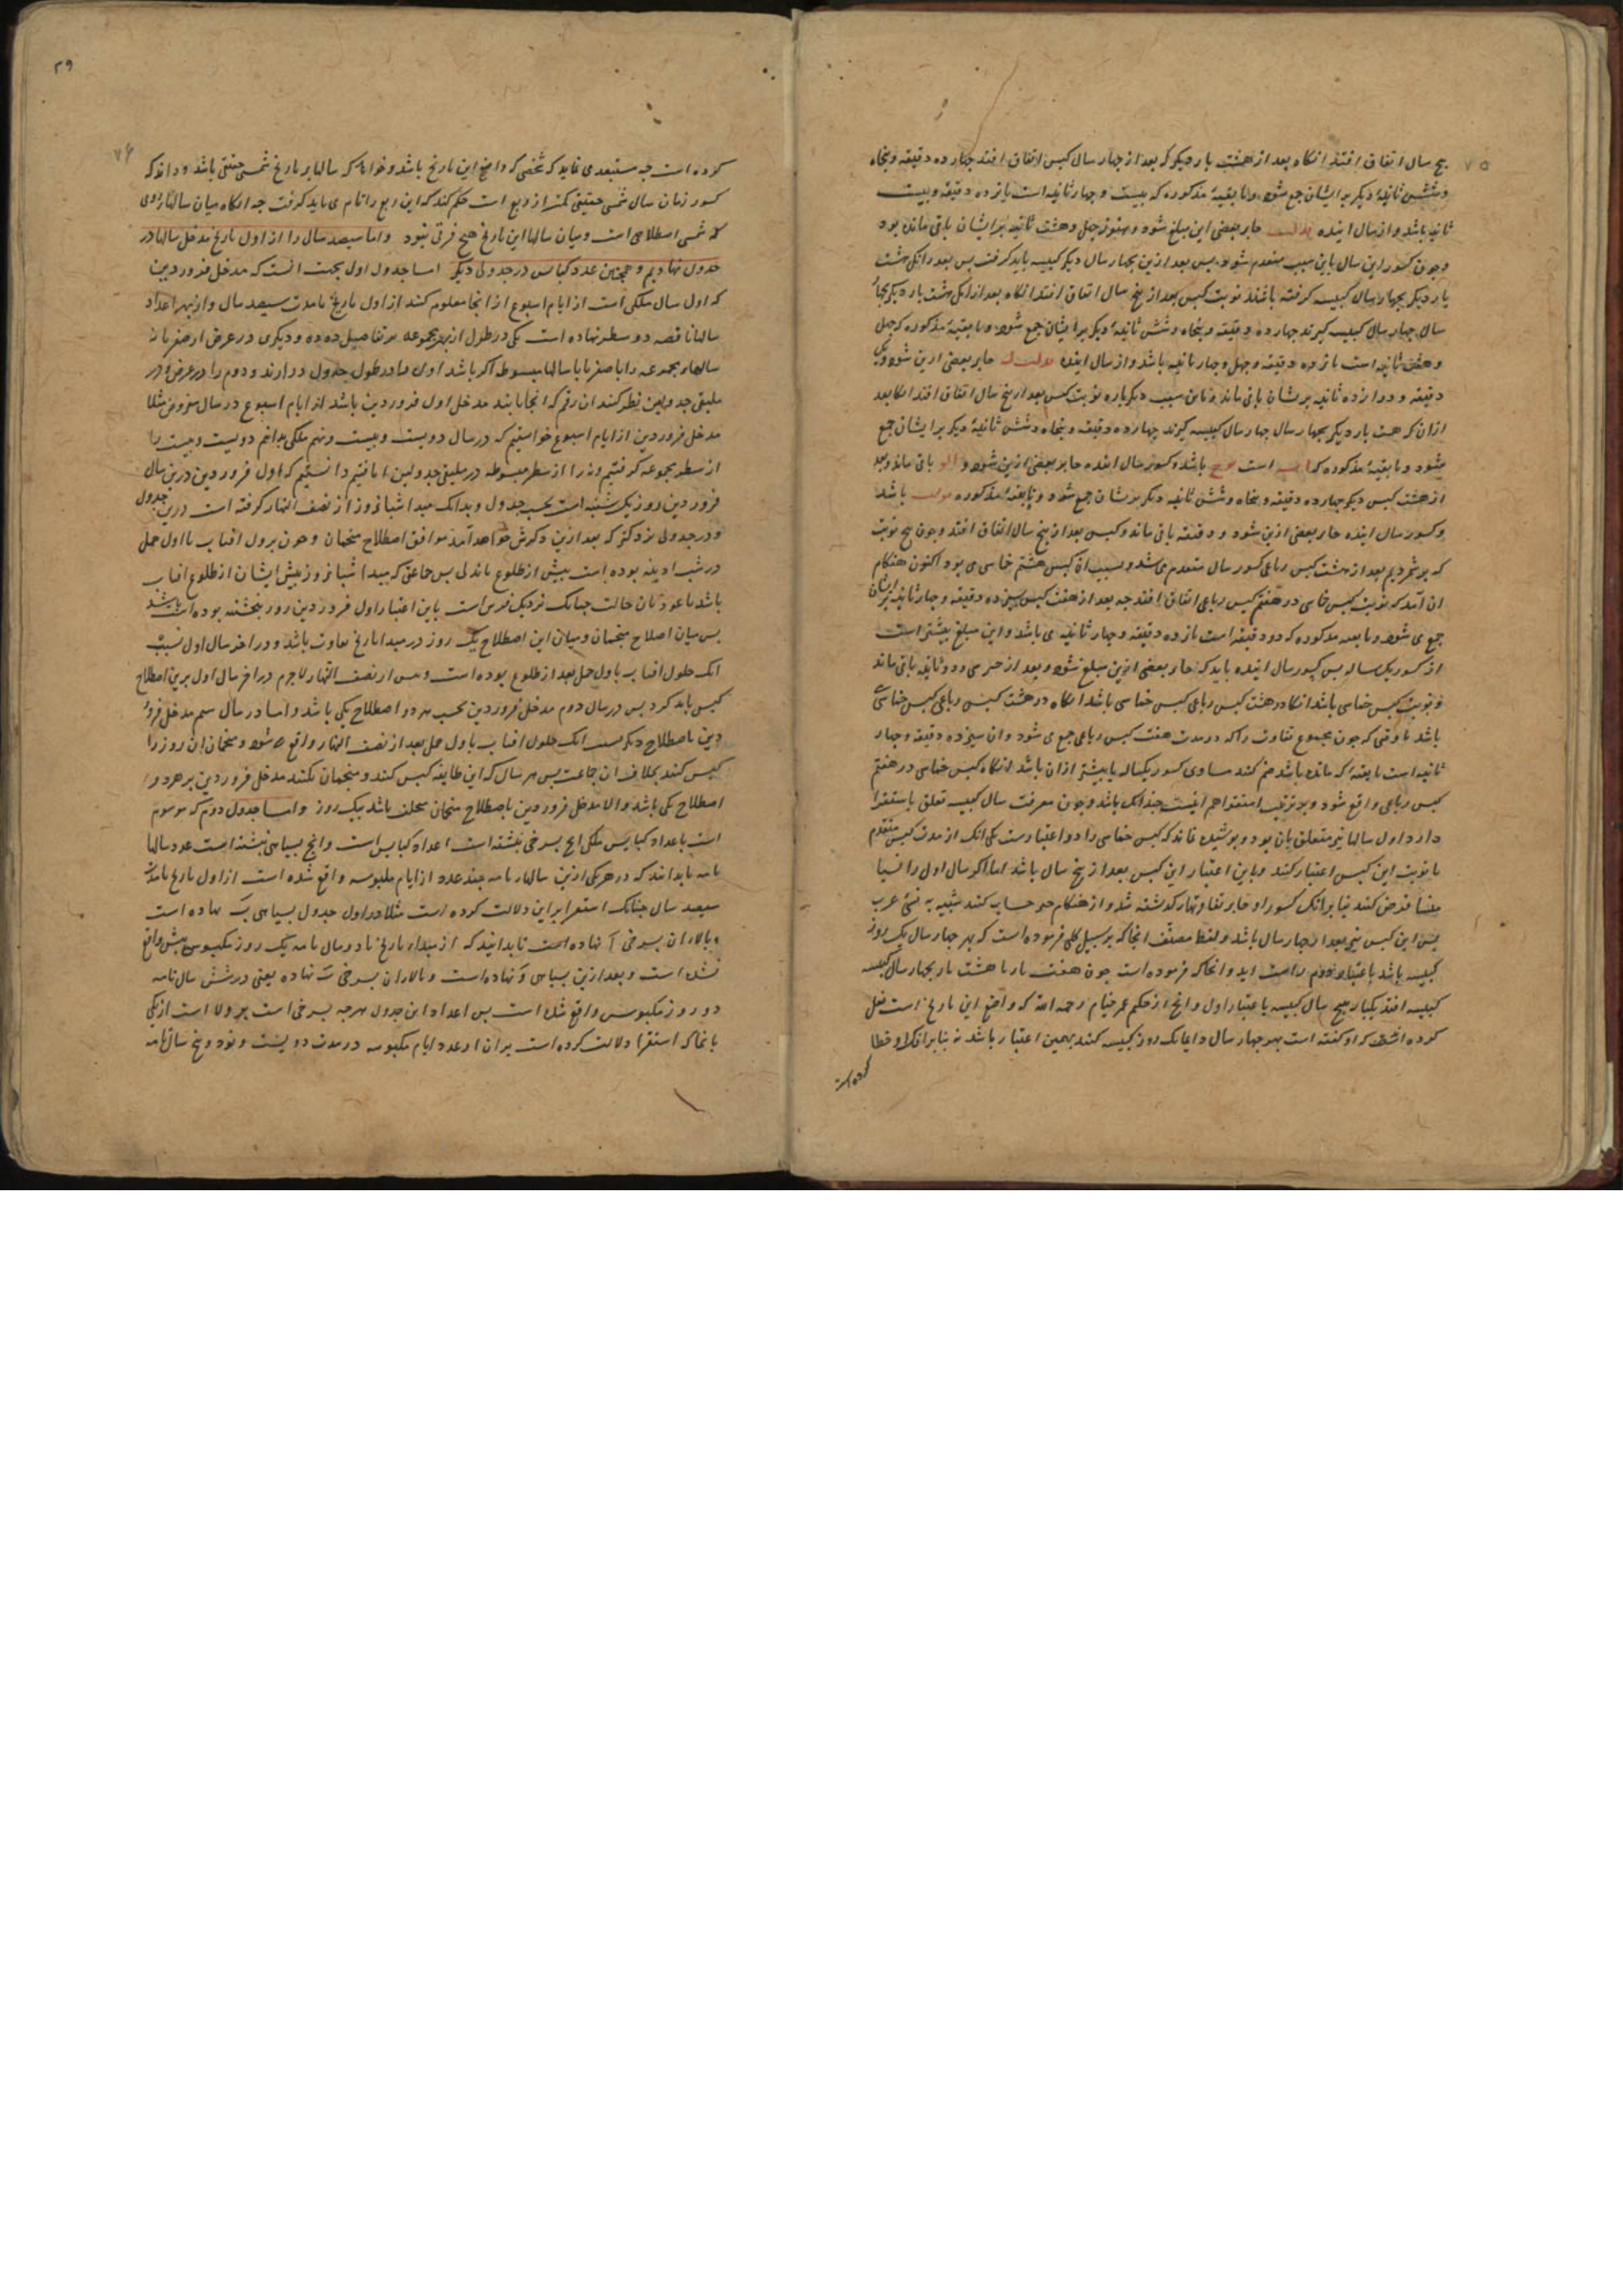 ۷۵
پنج سال اتفاق افتد انکاه بعد از هشت بار دیکر که بعد از چهار سال کبس اتفاق افتد چهار ده دقیقه و پنجاه
و شش ثانیهٔ دیکر بر ایشان جمع شود و با بقیهٔ مذکوره که بیست و چهار ثانیه است پانزده دقیقه و بیست
ثانیه باشد و از سال اینده جابر بعضی این مبلغ شود و هنوز چهل و هشت ثانیه بر ایشان باقی مانده بود
و چون کسور این سال باین سبب منعدم شود پس بعد ازین بچهار سال دیکر کبیسه باید کرفت پس بعد از انکه هشت
بار دیکر بچهار سال کبیسه کرفته باشند نوبت کبس بعد از پنج سال اتفاق افتد انکاه بعد از انکه هشت بار دیکر بچهار
سال چهار سال کبیسه کیرند چهار ده دقیقه و پنجاه و شش ثانیهٔ دیکر بر ایشان جمع شود و با بقیهٔ مذکوره که چهل
و هشت ثانیه است پانزده دقیقه و چهل و چهار ثانیه باشد و از سال اینده جابر بعضی ازین شود و یک
دقیقه و دوازده ثانیه بریشان باقی ماند و باین سبب دیکر باره نوبت کبس بعد از پنج سال اتفاق افتد انکاه بعد
ازان که هشت بار دیکر بچهار سال چهار سال کبیسه کیرند چهارده دقیقه و پنجاه و شش ثانیهٔ دیکر بر ایشان جمع
شود و با بقیهٔ مذکوره که است باشد و کسور سال اینده جابر بعضی ازین شود و باقی ماند و بعد
از هشت کبس دیکر چهارده دقیقه و پنجاه و شش ثانیه دیکر بریشان جمع شود و با بقیهٔ مذکوره باشد
و کسور سال اینده جابر بعضی ازین شود و دقیقه باقی ماند و کبس بعد از پنج سال اتفاق افتد و چون پنج نوبت
که بر شمردیم بعد از هشت کبس رباعی کسور سال منعدم می شد و بسبب ان کبس هشتم خماسی می بود اکنون هنکام
ان آمد که نوبت کبس خماسی در هفتم کبس رباعی اتفاق افتد چه بعد از هفت کبس سیزده دقیقه و چهار ثانیه بر ایشان
جمع می شود و با بقیه مذکوره که دو دقیقه است پانزده دقیقه و چهار ثانیه می باشد و این مبلغ بیشتر است
از کسور یکساله پس کسور سال اینده باید که جابر بعضی ازین مبلغ شود و بعد از جبر سی و دو ثانیه باقی ماند
و نوبت کبس خماسی باشد انکاه در هشت کبس رباعی کبس خماسی باشد انکاه در هشت کبس رباعی کبس خماسی
باشد تا وقتی که چون مجموع تفاوت را که در مدت هفت کبس رباعی جمع می شود و ان سیزده دقیقه و چهار
ثانیه است با بقیهٔ که مانده باشد ضم کنند مساوی کسور یکساله یا بیشتر ازان باشد انکاه کبس خماسی در هفتم
کبس رباعی واقع شود و بر ترتیب استقرا هم اینست چندانک باشد و چون معرفت سال کبیسه تعلق باستقرا
دارد اول سالها نیز متعلق بان بود و پوشیده نماند که کبس خماسی را دو اعتبارست یکی انک از مدت کبس متقدم
تا نوبت این کبس اعتبار کنند و باین اعتبار این کبس بعد از پنج سال باشد اما اکر سال اول را
منسیا فرض کنند بنا برانک کسور او جابر تفاوتهای کذشته شد و از هنکام جبر حساب کنند شبیه به نسئ عرب
پس این کبس نیز بعد از چهار سال باشد و لفظ مصنف انجا که بر سبیل کلی فرموده است که بهر چهار سال یک روز
کبیسه باشد باعتبار دوم راست اید و انجا که فرموده است چون هفت بار یا هشت بار بچهار سال کبیسه
کبیسه افتد یکبار به پنج سال کبیسه باعتبار اول و انچ از حکیم عمر خیام رحمه الله که واضع این تاریخ است نقل
کرده اند که او کفته است بهر چهار سال دایما یک روز کبیسه کنند بهمین اعتبار باشد نه بنا برانک او خطا
کرده است
۲۹
۷۶
کرده است چه مستبعد می نماید که شخصی که واضع این تاریخ باشد و خواهد که سالها بر تاریخ شمسی حقیقی باشد و داند که
کسور زمان سال شمسی حقیقی کمتر از ربع است حکم کند که این ربع را تمام می باید کرفت چه انکاه میان سالهای رومی
که شمسی اصطلاحی است و میان سالها این تاریخ هیچ فرق نبود و اما سیصد سال را از اول تاریخ مدخل سالها در
جدول نهادیم و همچنین عدد کبائس در جدولی دیکر اما جدول اول بجهت انست که مدخل فروردین
که اول سال ملکی است از ایام اسبوع از انجا معلوم کنند از اول تاریخ تا مدت سیصد سال و از بهر اعداد
سالها ناقصه دو سطر نهاده است یکی در طول از بهر مجموعه بتفاضل ده ده و دیکری در عرض از صفر تا نه
سالهاء مجموعه را با صفر یا با سالها مبسوطه اکر باشد اول را در طول جدول در ارند و دوم را در عرض و در
ملتقی جدولین نظر کنند ان رقم که انجا یابند مدخل اول فروردین باشد از ایام اسبوع در سال مفروض مثلا
مدخل فروردین از ایام اسبوع خواستیم که در سال دویست و بیست و نهم ملکی بدانیم دویست و بیست را
از سطر مجموعه کرفتیم و نه را از سطر مبسوطه در ملتقی جدولین ا یافتیم دانستیم که اول فروردین درین سال
فروردین روز یکشنبه است بحسب جدول و بدانک مبدا شبانروز از نصف النهار کرفته است درین جدول
و در جدولی نزد کتر که بعد ازین ذکرش خواهد آمد موافق اصطلاح منجمان و چون نزول افتاب باول حمل
در شب ادینه بوده است پیش از طلوع باندکی پس جماعتی که مبدا شبانروز پیش ایشان از طلوع افتاب
باشد باین اعتبار اول فروردین روز پنجشنبه بوده است باشد
پس میان اصلاح منجمان و میان این اصطلاح یک روز در مبدا تاریخ تفاوت باشد و در اخر سال اول بسبب
انک حلول افتاب باول حمل بعد از طلوع بوده است و پیش از نصف النهار لاجرم در اخر سال اول برین اصطلاح
کبس باید کرد پس در سال دوم مدخل فروردین بحسب هر دو اصطلاح یکی باشد و اما در سال سیم مدخل فرور
دین باصطلاح دیکر انک حلول افتاب باول حمل بعد از نصف النهار واقع شود و منجمان ان روز را
کبس کنند بخلاف ان جماعت پس هر سال که این طایفه کبس کنند و منجمان نکنند مدخل فروردین بر هر دو
اصطلاح یکی باشد و الا مدخل فروردین باصطلاح منجمان مختلف باشد بیک روز و اما جدول دوم که موسوم
است باعداد کبایس ملکی انچ بسرخی نبشته است اعداد کبایس است و انچ بسیاهی نبشته است عدد سالها
تامه تا بدانند که در هر یکی ازین سالهاء تامه چند عدد از ایام مکبوسه واقع شده است از اول تاریخ تا مدت
سیصد سال چنانک استقرا بر این دلالت کرده است مثلا در اول جدول بسیاهی ب نهاده است
و بالاء ان بسرخی آ نهاده است تا بدانند که از مبداء تاریخ تا دو سال تامه یک روز مکبوس بیش واقع
نشده است و بعد ازین بسیاهی و نهاده است و بالاء ان بسرخی ب نهاده یعنی در شش سال تامه
دو روز مکبوس واقع شده است پس اعداد این جدول هرچه بسرخی است بر ولا است از یکی
تا انجا که استقرا دلالت کرده است بران از عدد ایام مکبوسه در مدت دویست و نود و پنج سال تامه